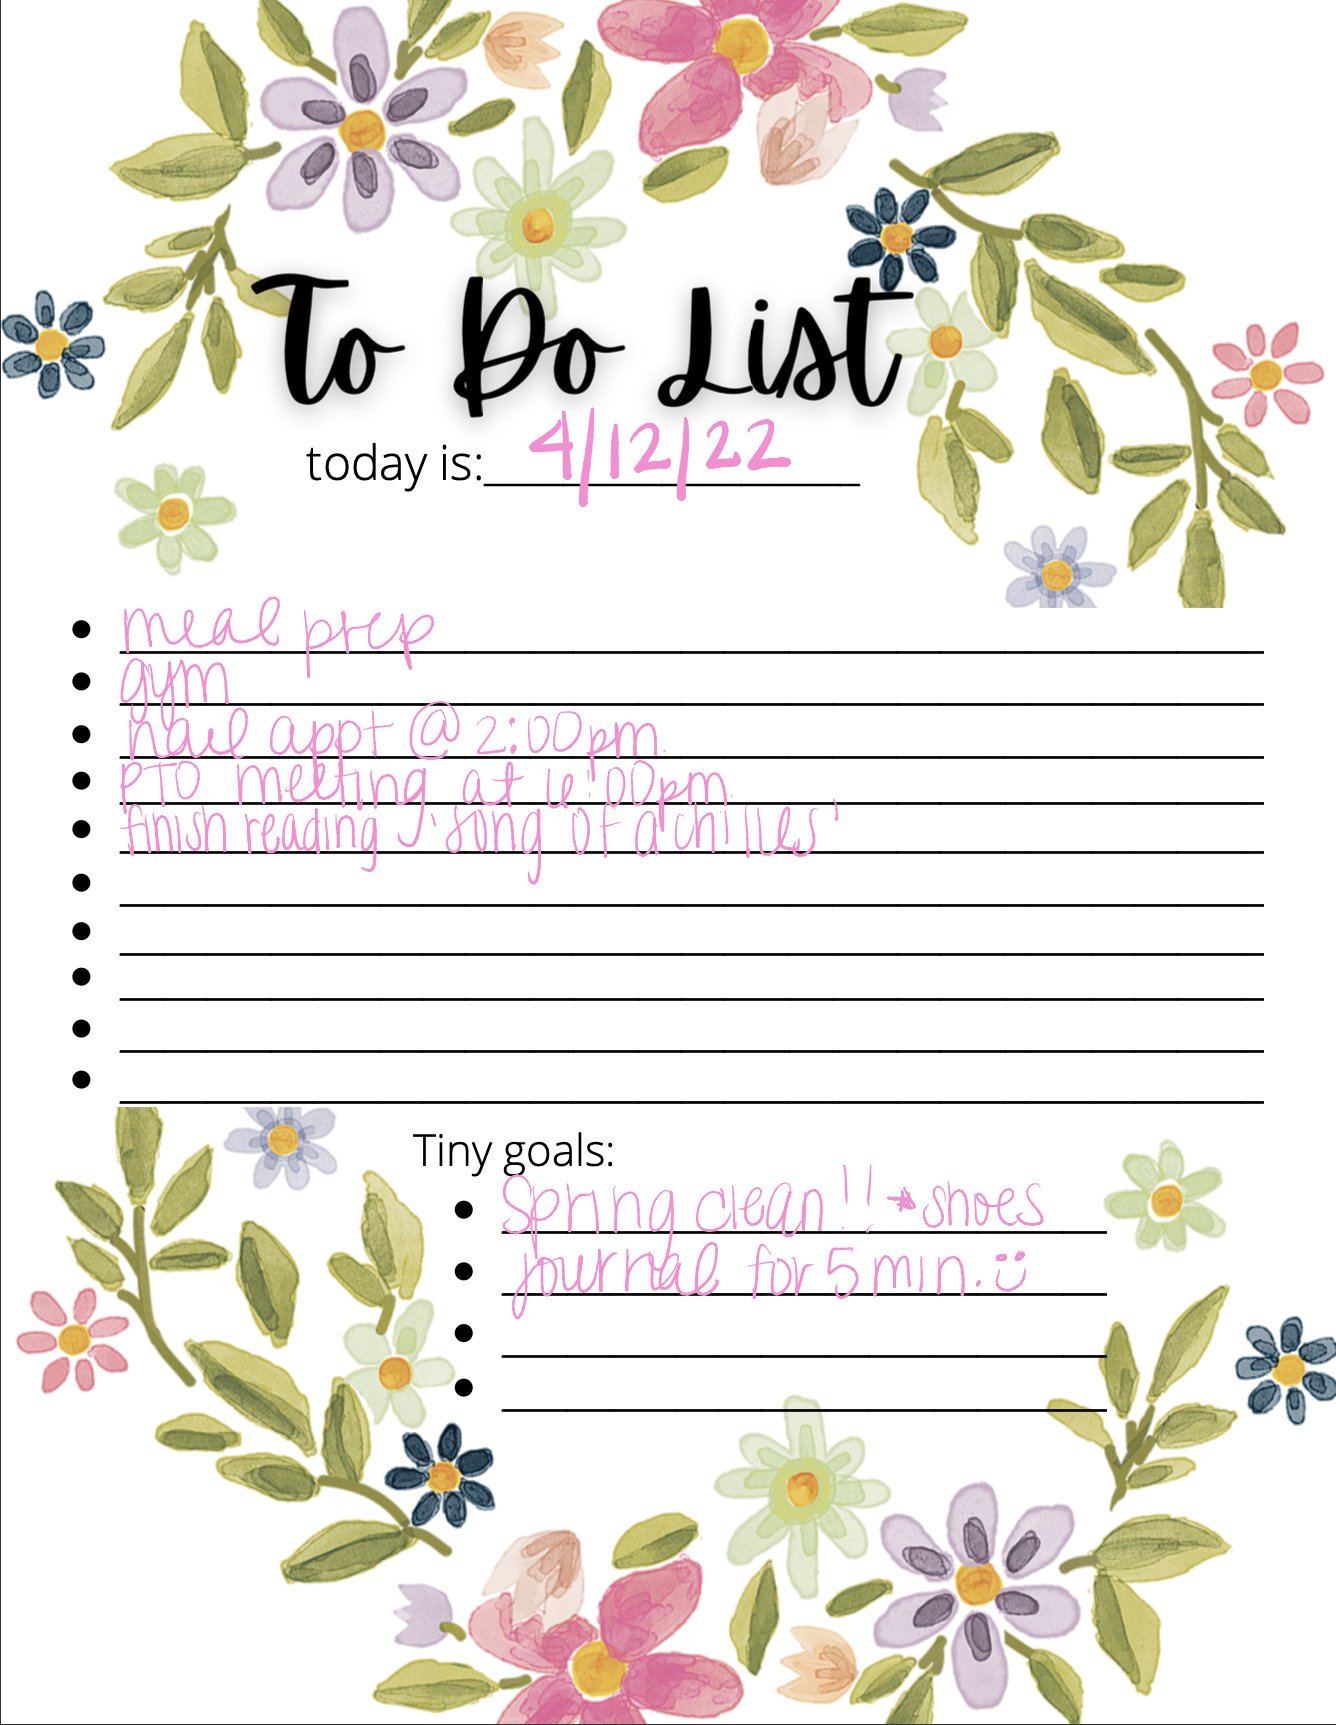 To Do List
today is: 4/12/22
meal prep
gym
nail appt @ 2:00pm.
PTO meeting at 6:00pm.
finish reading 'song of achilles'
Tiny goals:
Spring clean!! → shoes
journal for 5 min. :)